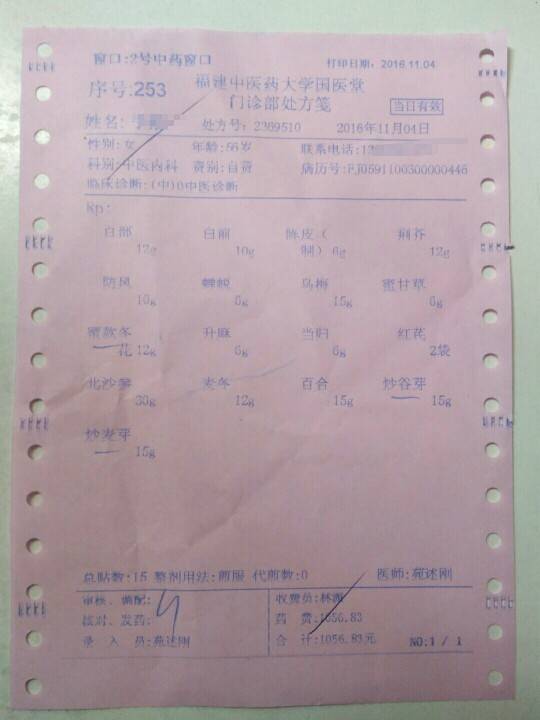 窗口:2号中药窗口 打印日期: 2016.11.04
序号:253 福建中医药大学国医堂
门诊部处方笺 当日有效
姓名: 处方号: 2369510 2016年11月04日
性别:女 年龄:56岁 联系电话:13
科别:中医内科 费别:自费 病历号:PJ0591100300000446
临床诊断:(中)0中医诊断
Rp:
百部 白前 陈皮( 荆芥
12g 10g 制) 6g 12g
防风 蝉蜕 乌梅 蜜甘草
10g 6g 15g 6g
蜜款冬 升麻 当归 红芪
花 12g 6g 6g 2袋
北沙参 麦冬 百合 炒谷芽
30g 12g 15g 15g
炒麦芽
15g
总贴数:15 整剂用法:煎服 代煎数:0 医师:苑述刚
审核、调配: 收费员:林
核对、发药: 药 费:1056.83
录 入 员:苑述刚 合 计:1056.83元 NO:1 / 1